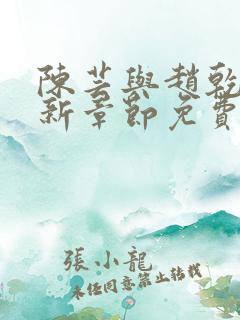 陳芸與趙乾
新章節免費
張小龍
未經同意禁止轉載